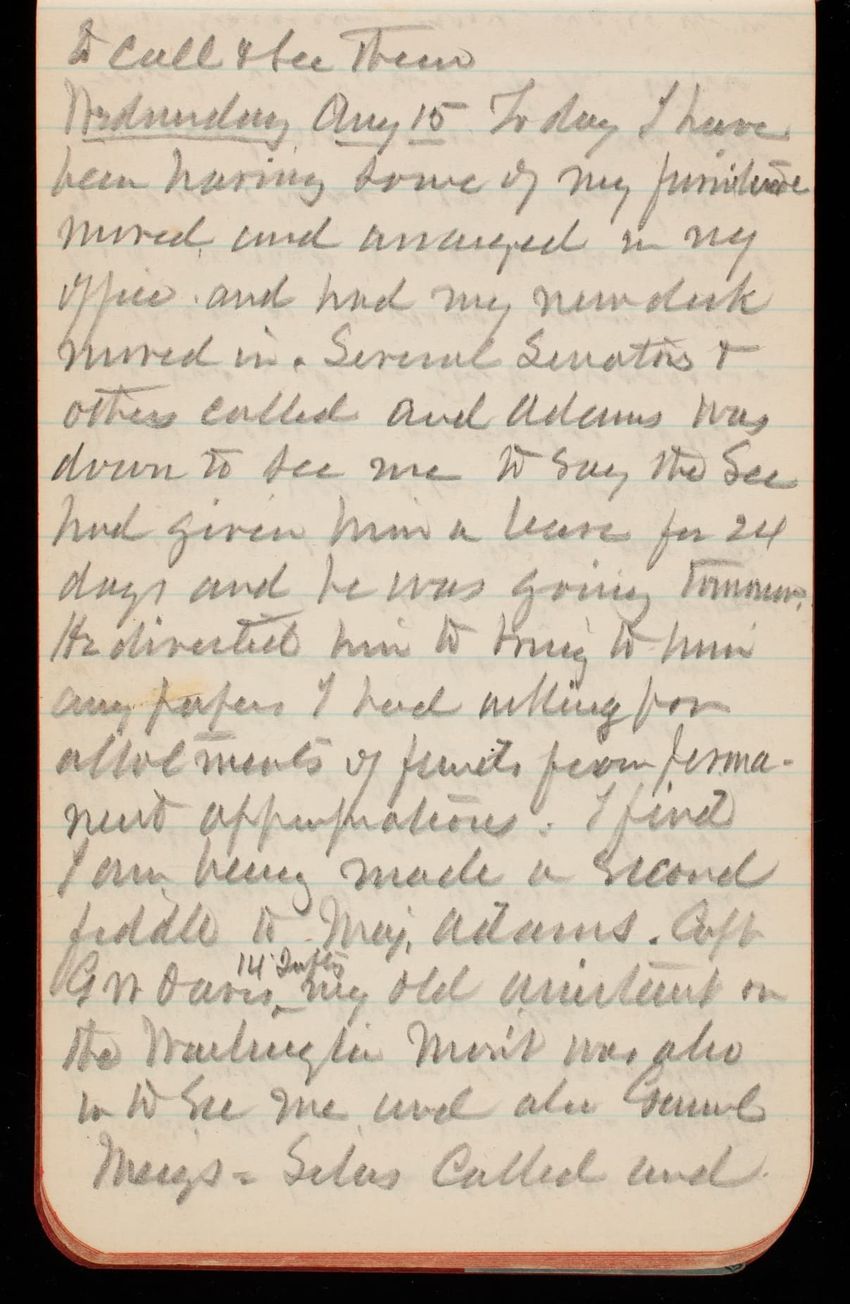 to call & see them
Wednesday Aug 15 To day I have
been having some of my furniture
moved and arranged in my
office and had my new desk
moved in. Several Senators &
others called and Adams was
down to see me to say the Sec
had given him a leave for 24
days and he was going tomorrow.
He directed him to bring to him
any papers I had asking for
allotments of funds from perma-
nent appropriations. I find
I am being made a second
fiddle to Maj. Adams. Capt
14 Infty
G W Davis, my old assistant on
the Washington Mon't was also
in to see me and also General
Meigs = Silas Called and